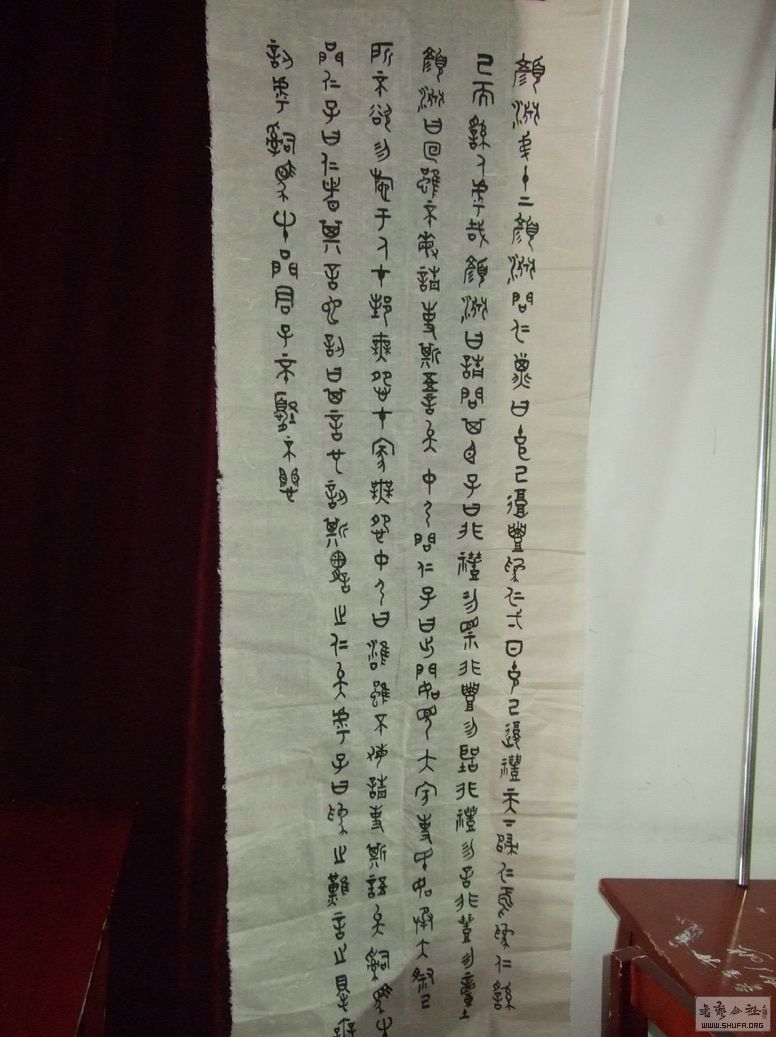 顏淵第十二顏淵問仁子曰克己復禮為仁一日克己復禮天下歸仁焉為仁由
己而由人乎哉顏淵曰請問其目子曰非禮勿視非禮勿聽非禮勿言非禮勿動
顏淵曰回雖不敏請事斯語矣中弓問仁子曰出門如見大賓使民如承大祭己
所不欲勿施于人在邦無怨在家無怨中弓曰雍雖不敏請事斯語矣司馬牛
問仁子曰仁者其言也訒曰其言也訒斯謂之仁矣乎子曰為之難言之得無
訒乎司馬牛問君子不憂不懼
書藝公社
WWW.SHUFA.ORG